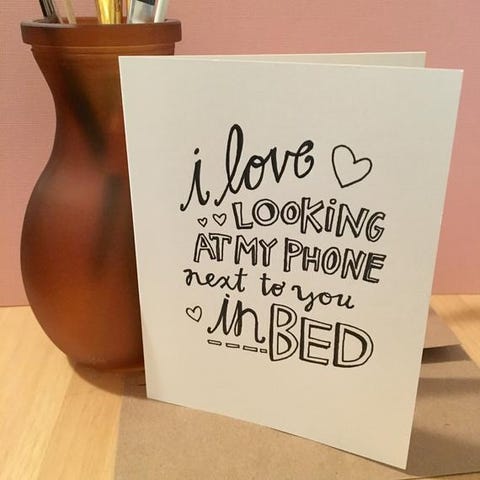 i love
LOOKING
AT MY PHONE
next to you
in BED